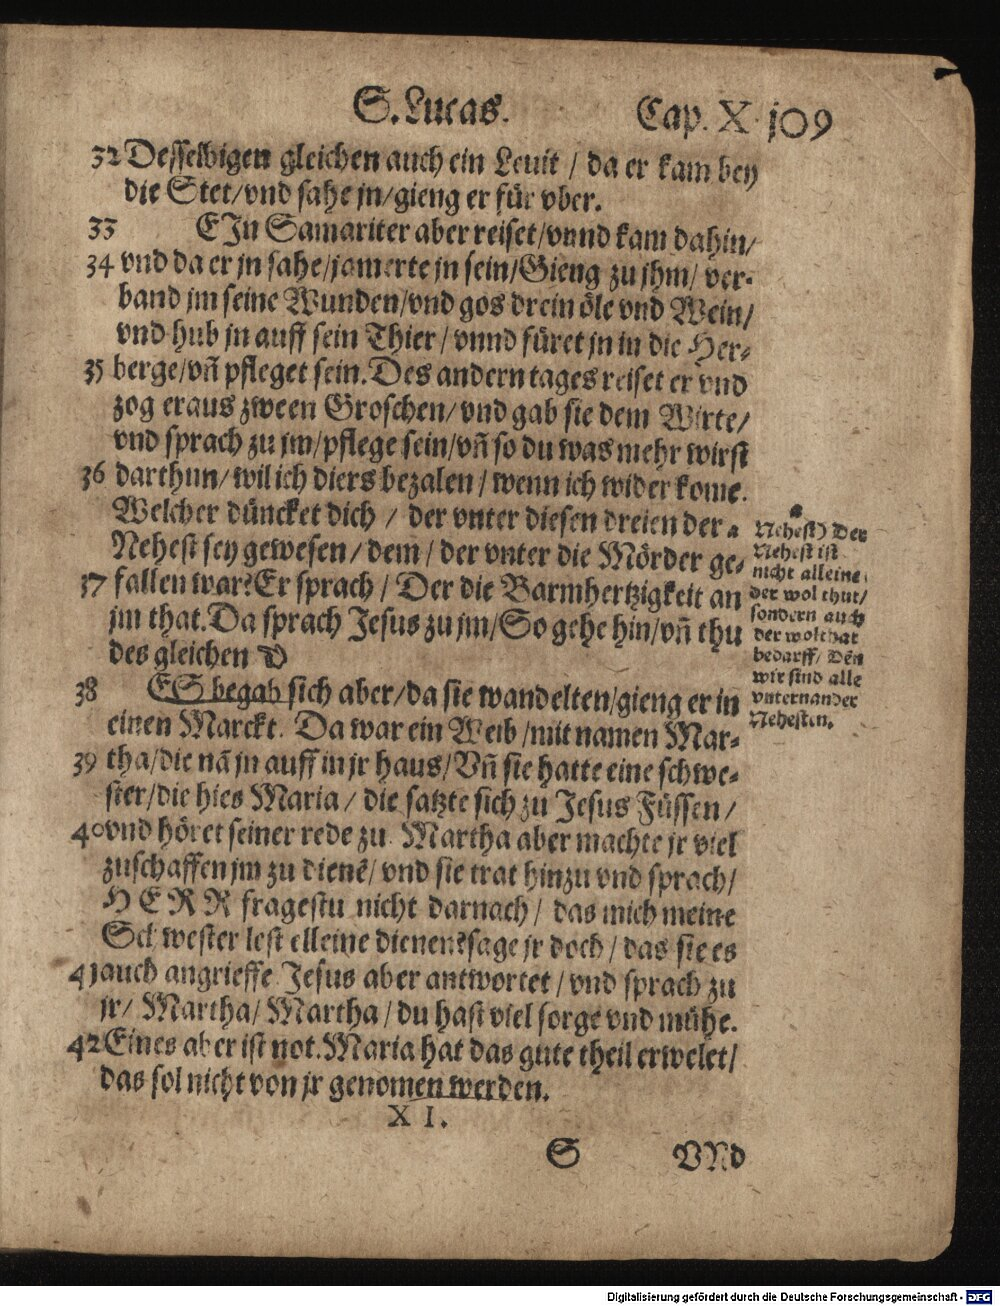 S. Lucas. Cap. X 109
32 Desselbigen gleichen auch ein Leuit / da er kam bey
die Stet/vnd sahe jn/gieng er für vber.
33 EJn Samariter aber reiset/vnnd kam dahin/
34 vnd da er jn sahe/jamerte jn sein/Gieng zu jhm/ ver-
band jm seine Wunden/vnd gos drein öle vnd Wein/
vnd hub jn auff sein Thier / vnnd füret jn in die Her-
35 berge/vn̄ pfleget sein. Des andern tages reiset er vnd
zog eraus zween Groschen/vnd gab sie dem Wirte/
vnd sprach zu jm/pflege sein/vn̄ so du was mehr wirst
36 darthun/ wil ich diers bezalen / wenn ich wider kome.
Welcher düncket dich / der vnter diesen dreien der a
Nehest sey gewesen/ dem / der vnter die Mörder ge-
37 fallen war? Er sprach / Der die Barmhertzigkeit an
jm that. Da sprach Jesus zu jm/So gehe hin/vn̄ thu
des gleichen
a
Nehest) Der
Nehest ist
nicht alleine
der wol thut/
sondern auch
der wolthat
bedarff/ Deñ
wir sind alle
vnternander
Nehesten.
38 ES begab sich aber/da sie wandelten/gieng er in
einen Marckt. Da war ein Weib /mit namen Mar-
39 tha/die nā jn auff in jr haus/Vn̄ sie hatte eine schwe-
ster/die hies Maria / die satzte sich zu Jesus Füssen /
40 vnd höret seiner rede zu. Martha aber machte jr viel
zuschaffen jm zu dienē/ vnd sie trat hinzu vnd sprach/
HERR fragestu nicht darnach / das mich meine
Schwester lest elleine dienen? sage jr doch / das sie es
41 auch angrieffe Jesus aber antwortet / vnd sprach zu
jr/ Martha/ Martha / du hast viel sorge vnd mühe.
42 Eines aber ist not. Maria hat das gute theil erwelet/
das sol nicht von jr genomen werden.
XI.
S VNd
Digitalisierung gefördert durch die Deutsche Forschungsgemeinschaft - DFG